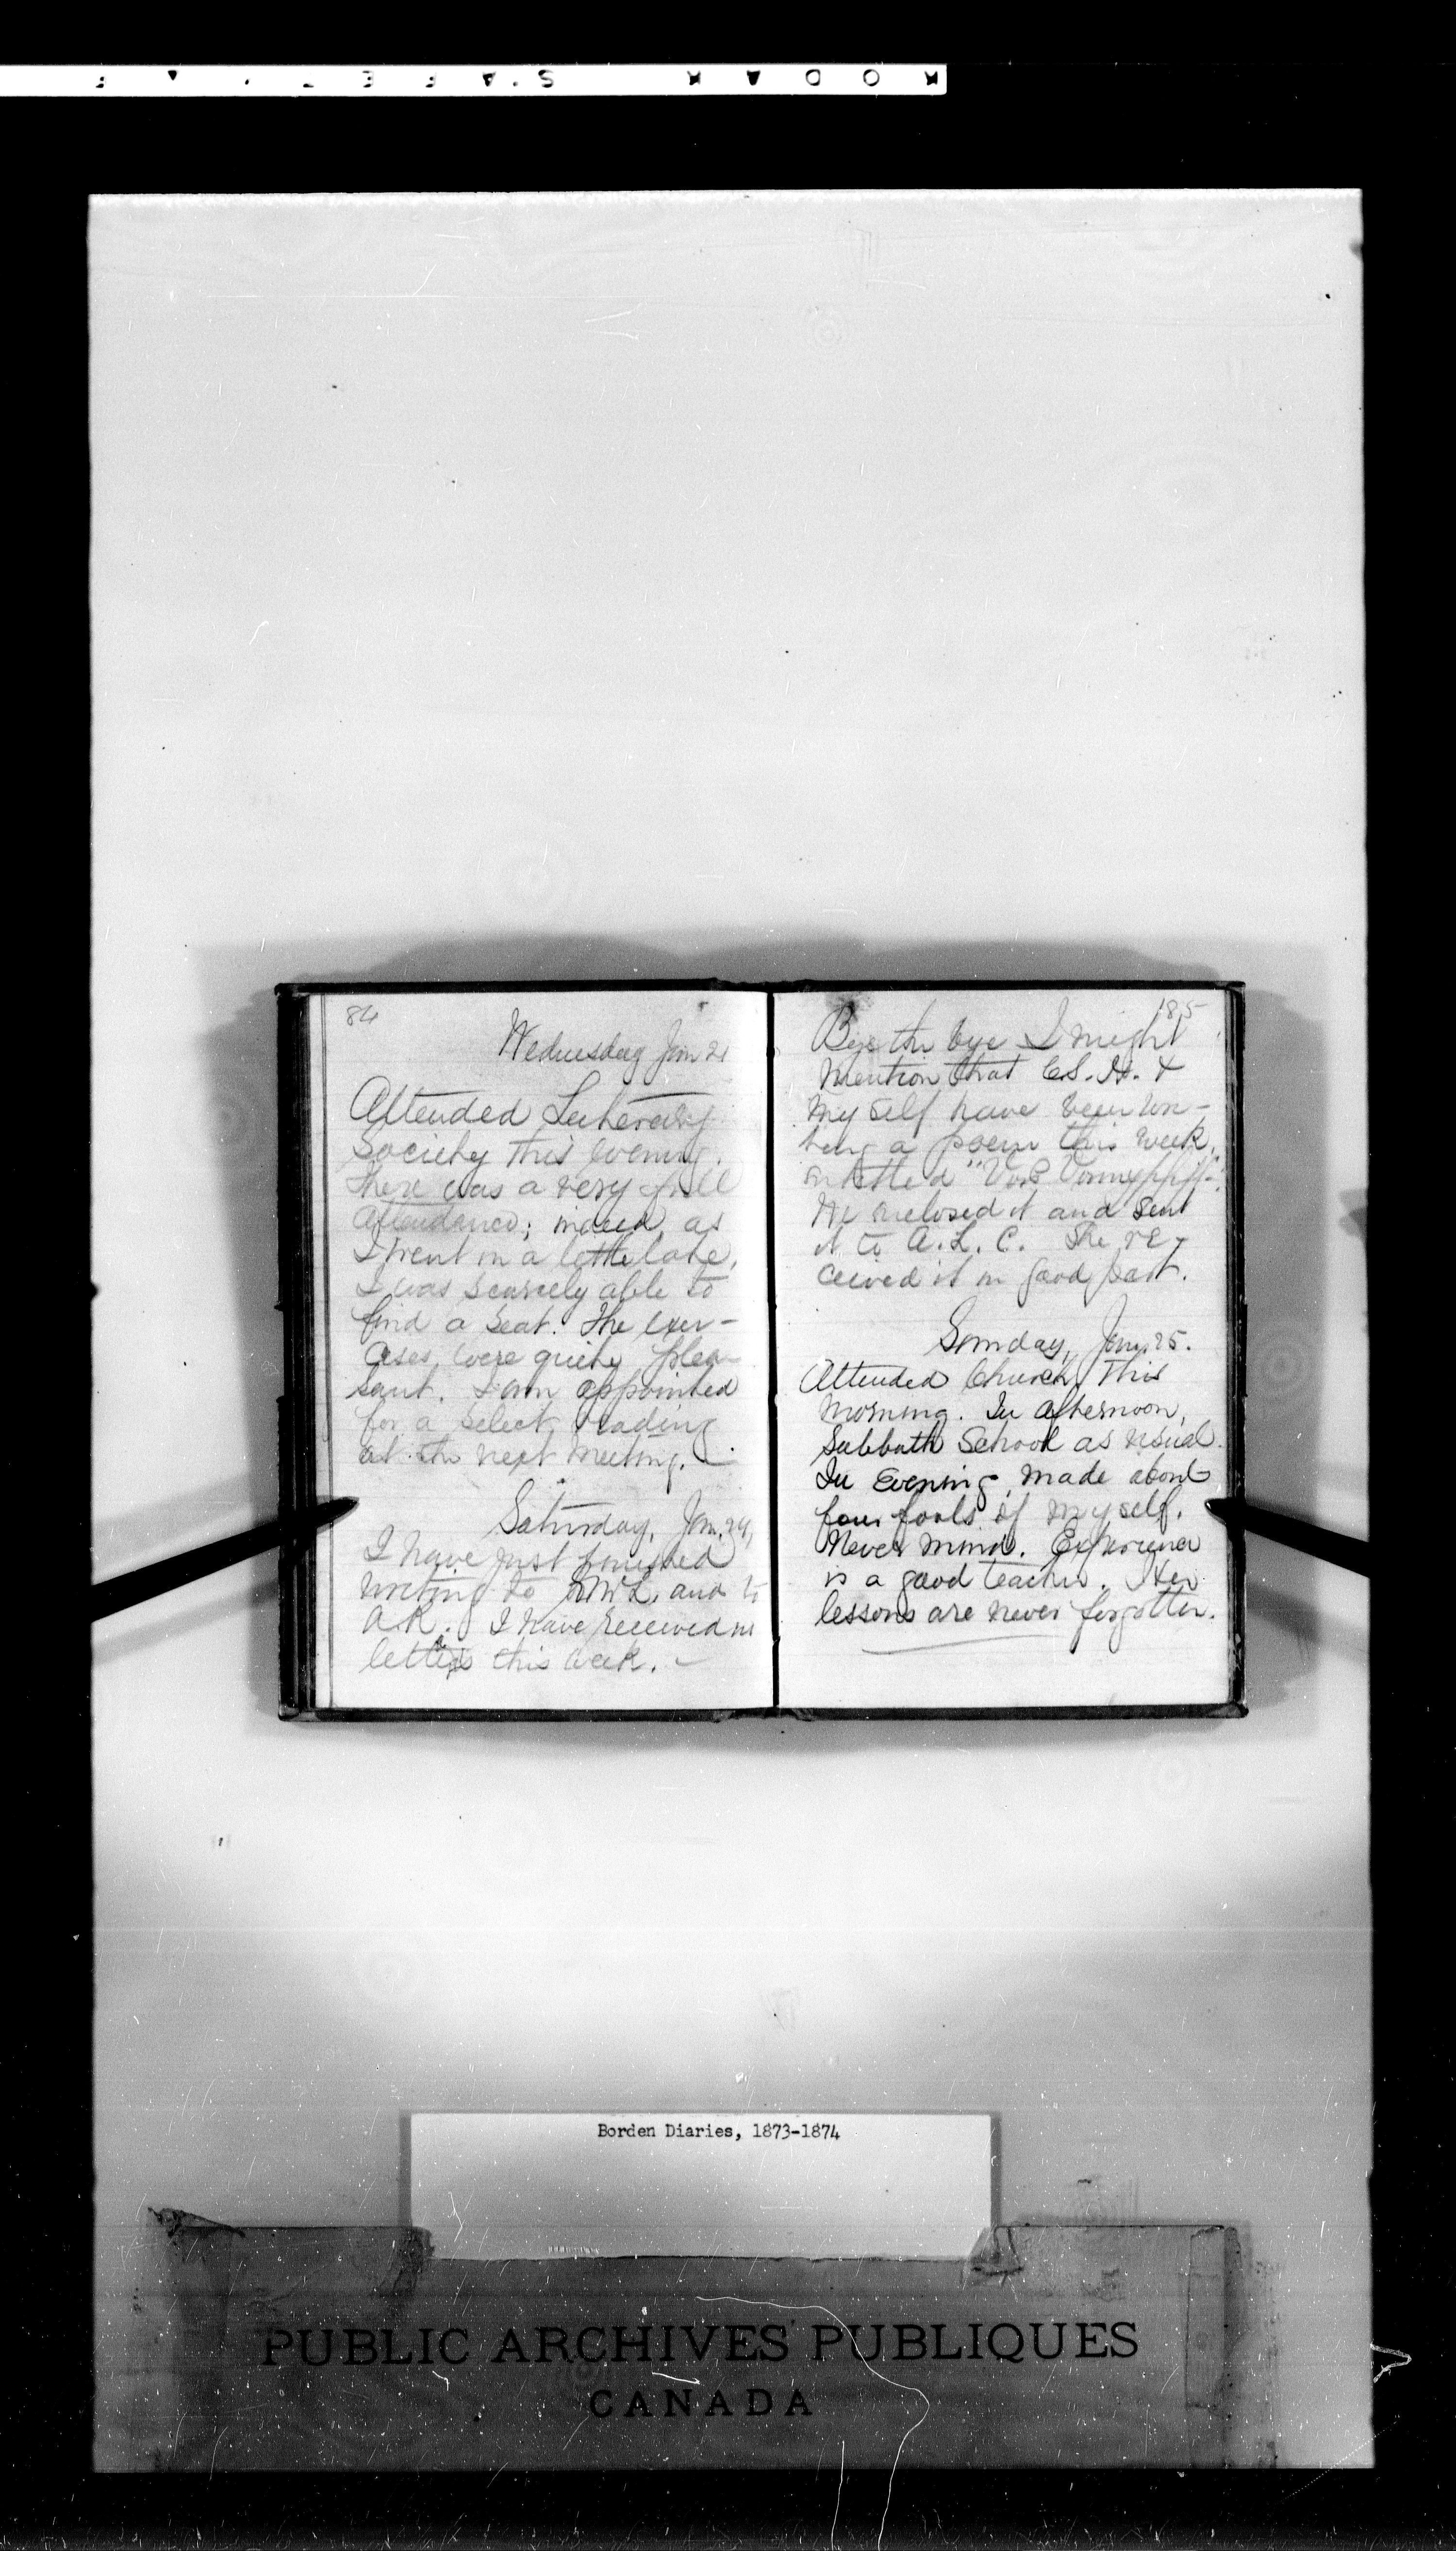 KODAK SAFETY F
84
Wednesday Jan 21
Attended Literary
Society this evening.
There was a very full
attendance; indeed, as
I went in a little late,
I was scarcely able to
find a seat. The exer-
cises were quite plea-
sant. I am appointed
for a select reading
at the next meeting.
Saturday, Jan. 24,
I have just finished
writing to and to
A.R. I have received no
letters this week.
185
Bye the bye I might
mention that C.S.H. &
myself have been wri-
ting a poem this week,
entitled
We inclosed it and sent
it to A.L.C. She re-
ceived it in good part.
Sunday, Jan. 25.
Attended Church this
morning. In afternoon,
Sabbath School as usual.
In evening, made about
four fools of myself.
Never mind. Experience
is a good teacher. Her
lessons are never forgotten.
Borden Diaries, 1873-1874
PUBLIC ARCHIVES PUBLIQUES
CANADA